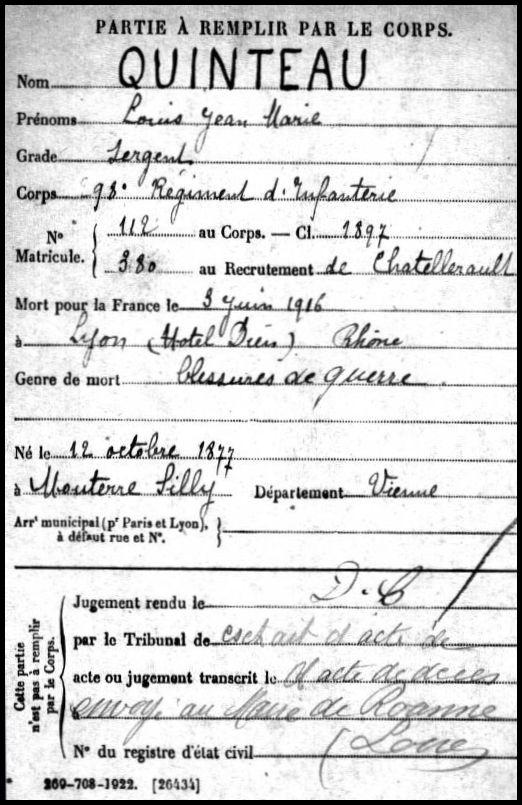 PARTIE À REMPLIR PAR LE CORPS.
Nom QUINTEAU
Prénoms Louis Jean Marie
Grade Sergent
Corps 98e Régiment d'Infanterie
No Matricule. { 112 au Corps. — Cl. 1897
380 au Recrutement de Chatellerault
Mort pour la France le 3 juin 1916
à Lyon (Hotel Dieu) Rhône
Genre de mort blessures de guerre
Né le 12 octobre 1877
à Mouterre Silly Département Vienne
Arrt municipal (pr Paris et Lyon),
à défaut rue et No.
Cette partie n'est pas à remplir par le Corps.
D.C
Jugement rendu le
par le Tribunal de extrait d'acte de
acte ou jugement transcrit le d'acte de décès
à envoyé au Maire de Roanne
(Loire)
No du registre d'état civil
269-708-1922. [26434]